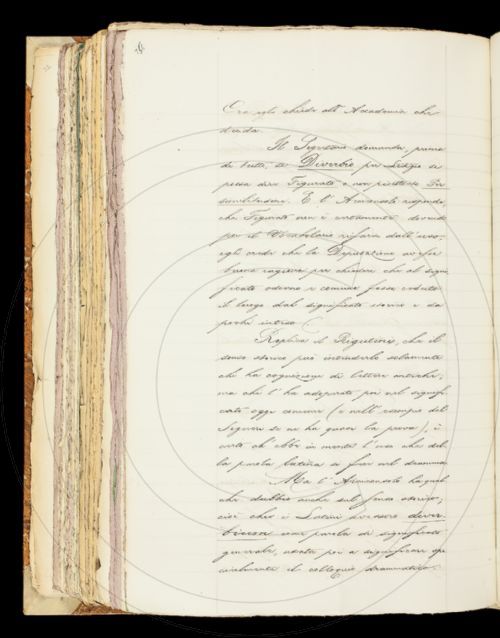 Ora egli chiede all'Accademia che
decida.
Il Segretario domanda, prima
di tutto, se Diverbio per Litigio si
possa dire Figurato, e non piuttosto
similitudine. E l'Arciconsolo risponde
che Figurato non è
per il Vocabolario rifarsi dall'uso:
egli crede che la Deputazione avesse
buone ragioni per chiedere che al signi
ficato odierno e comune fosse ceduto
il luogo dal significato storico e da
pochi inteso.
Replica il Rigutini, che il
senso storico può intenderlo solamente
che ha cognizione di lettere antiche;
ma chi l'ha adoperato poi nel signifi
cato oggi comune (e nell'esempio del
Segneri se ne ha quasi la prova), è
certo ch'ebbe in mente l'uso che del
la parola latina si fece nel dramma.
Ma l'Arciconsolo ha qual
che dubbio anche sul senso storico,
cioè che i Latini
come parola di significato
generale, usata poi a significare spe
cialmente il colloquio drammatico.